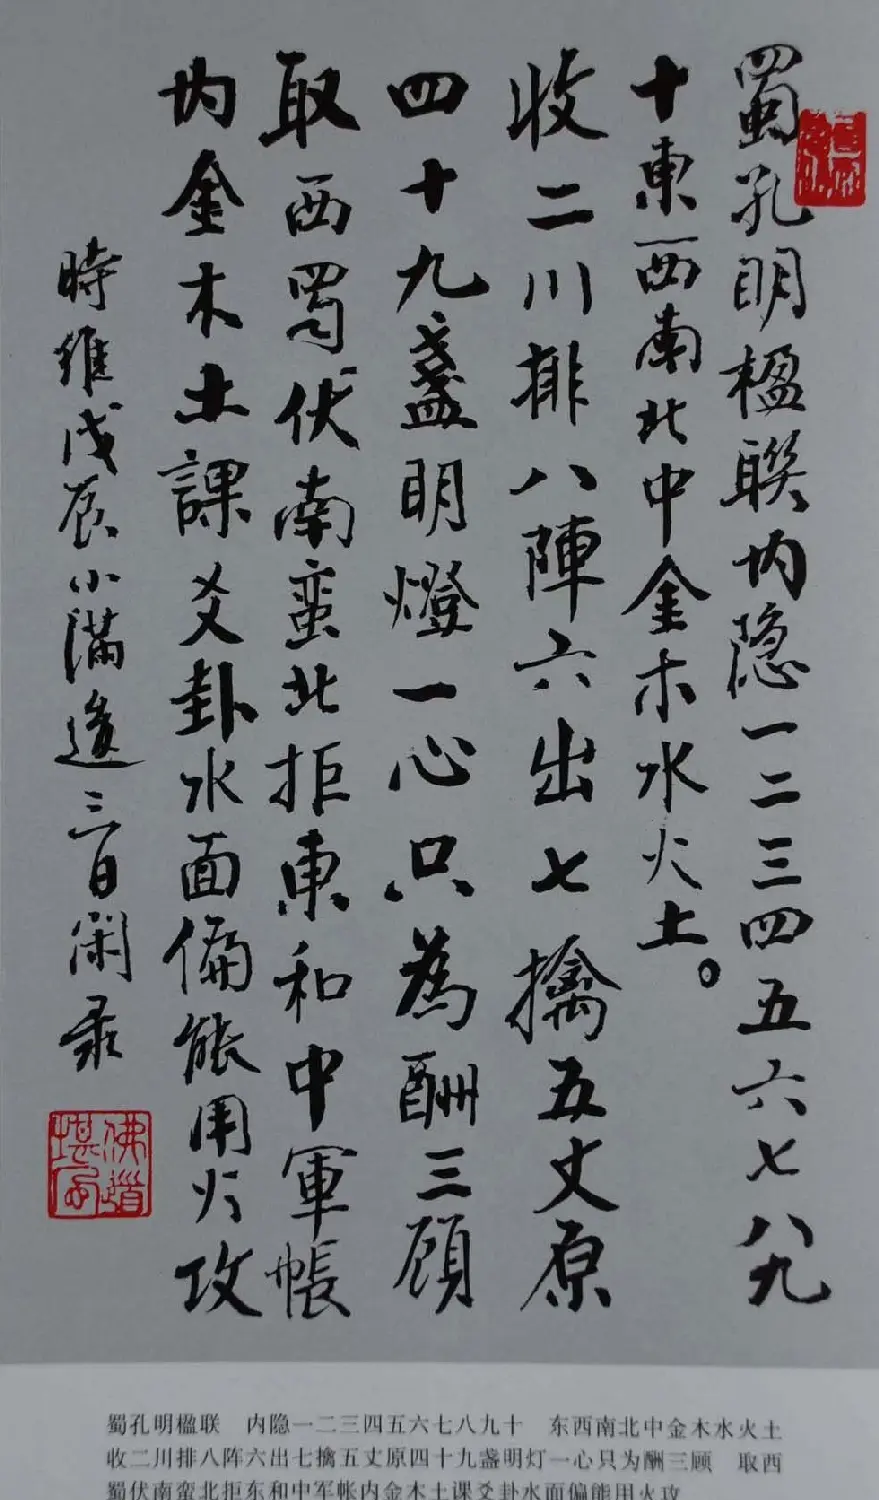 蜀孔明楹聯内隐一二三四五六七八九
十東西南北中金木水火土。
收二川排八陣六出七擒五丈原
四十九盞明燈一心只為酬三顾
取西蜀伏南蛮北拒東和中軍帳
内金木土課爻卦水面偏能用火攻
時維戊辰小滿後三日閑录
蜀孔明楹联 内隐一二三四五六七八九十 东西南北中金木水火土
收二川排八阵六出七擒五丈原四十九盏明灯一心只为酬三顾 取西
蜀伏南蛮北拒东和中军帐内金木土课爻卦水面偏能用火攻